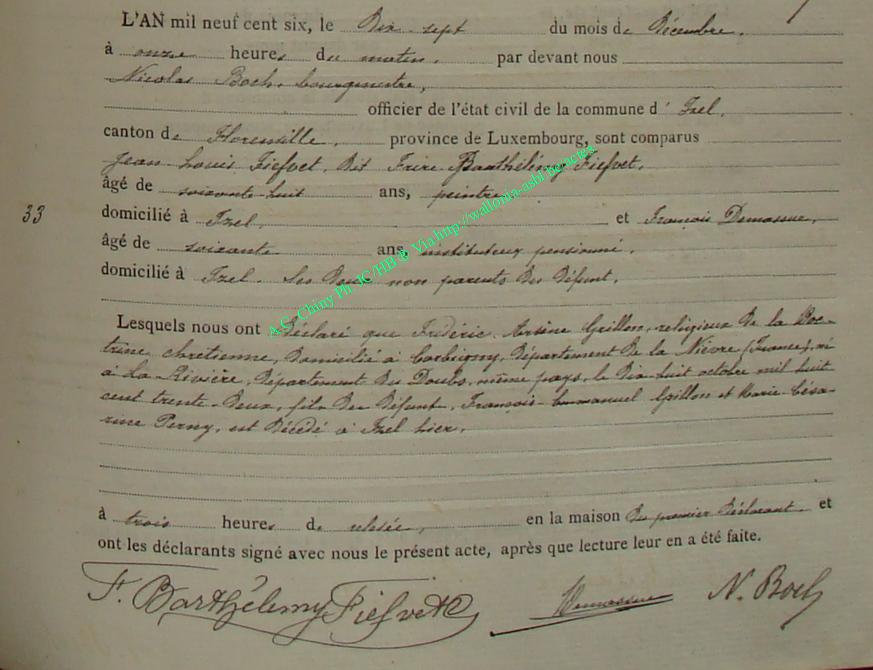 L'AN mil neuf cent six, le Dix-sept du mois de Décembre,
à onze heures du matin, par devant nous
Nicolas Boch, bourgmestre,
officier de l'état civil de la commune d'Izel,
canton de Florenville, province de Luxembourg, sont comparus
Jean-Louis Fiefvet, Dit Frère Barthélemy Fiefvet,
âgé de soixante-huit ans, peintre
33 domicilié à Izel, et François
âgé de soixante ans, instituteur pensionné,
domicilié à Izel. Les Deux non parents du Défunt.
A.C. Chiny Ph. JC/HB © Via http://wallonia-asbl.be/actes
Lesquels nous ont Déclaré que Frédéric-Arsène Grillon, religieux de la Doc-
trine chrétienne, Domicilié à Corbigny, Département de la Nièvre (France), né
à La Rivière, Département du Doubs, même pays, le Dix-huit octobre mil huit
cent trente-deux, fils des Défunts, François-Emmanuel Grillon et Marie-Césa-
rine Perny, est Décédé à Izel hier,
à trois heures de relevée, en la maison du premier Déclarant et
ont les déclarants signé avec nous le présent acte, après que lecture leur en a été faite.
F. Barthélemy Fiefvet N. Boch